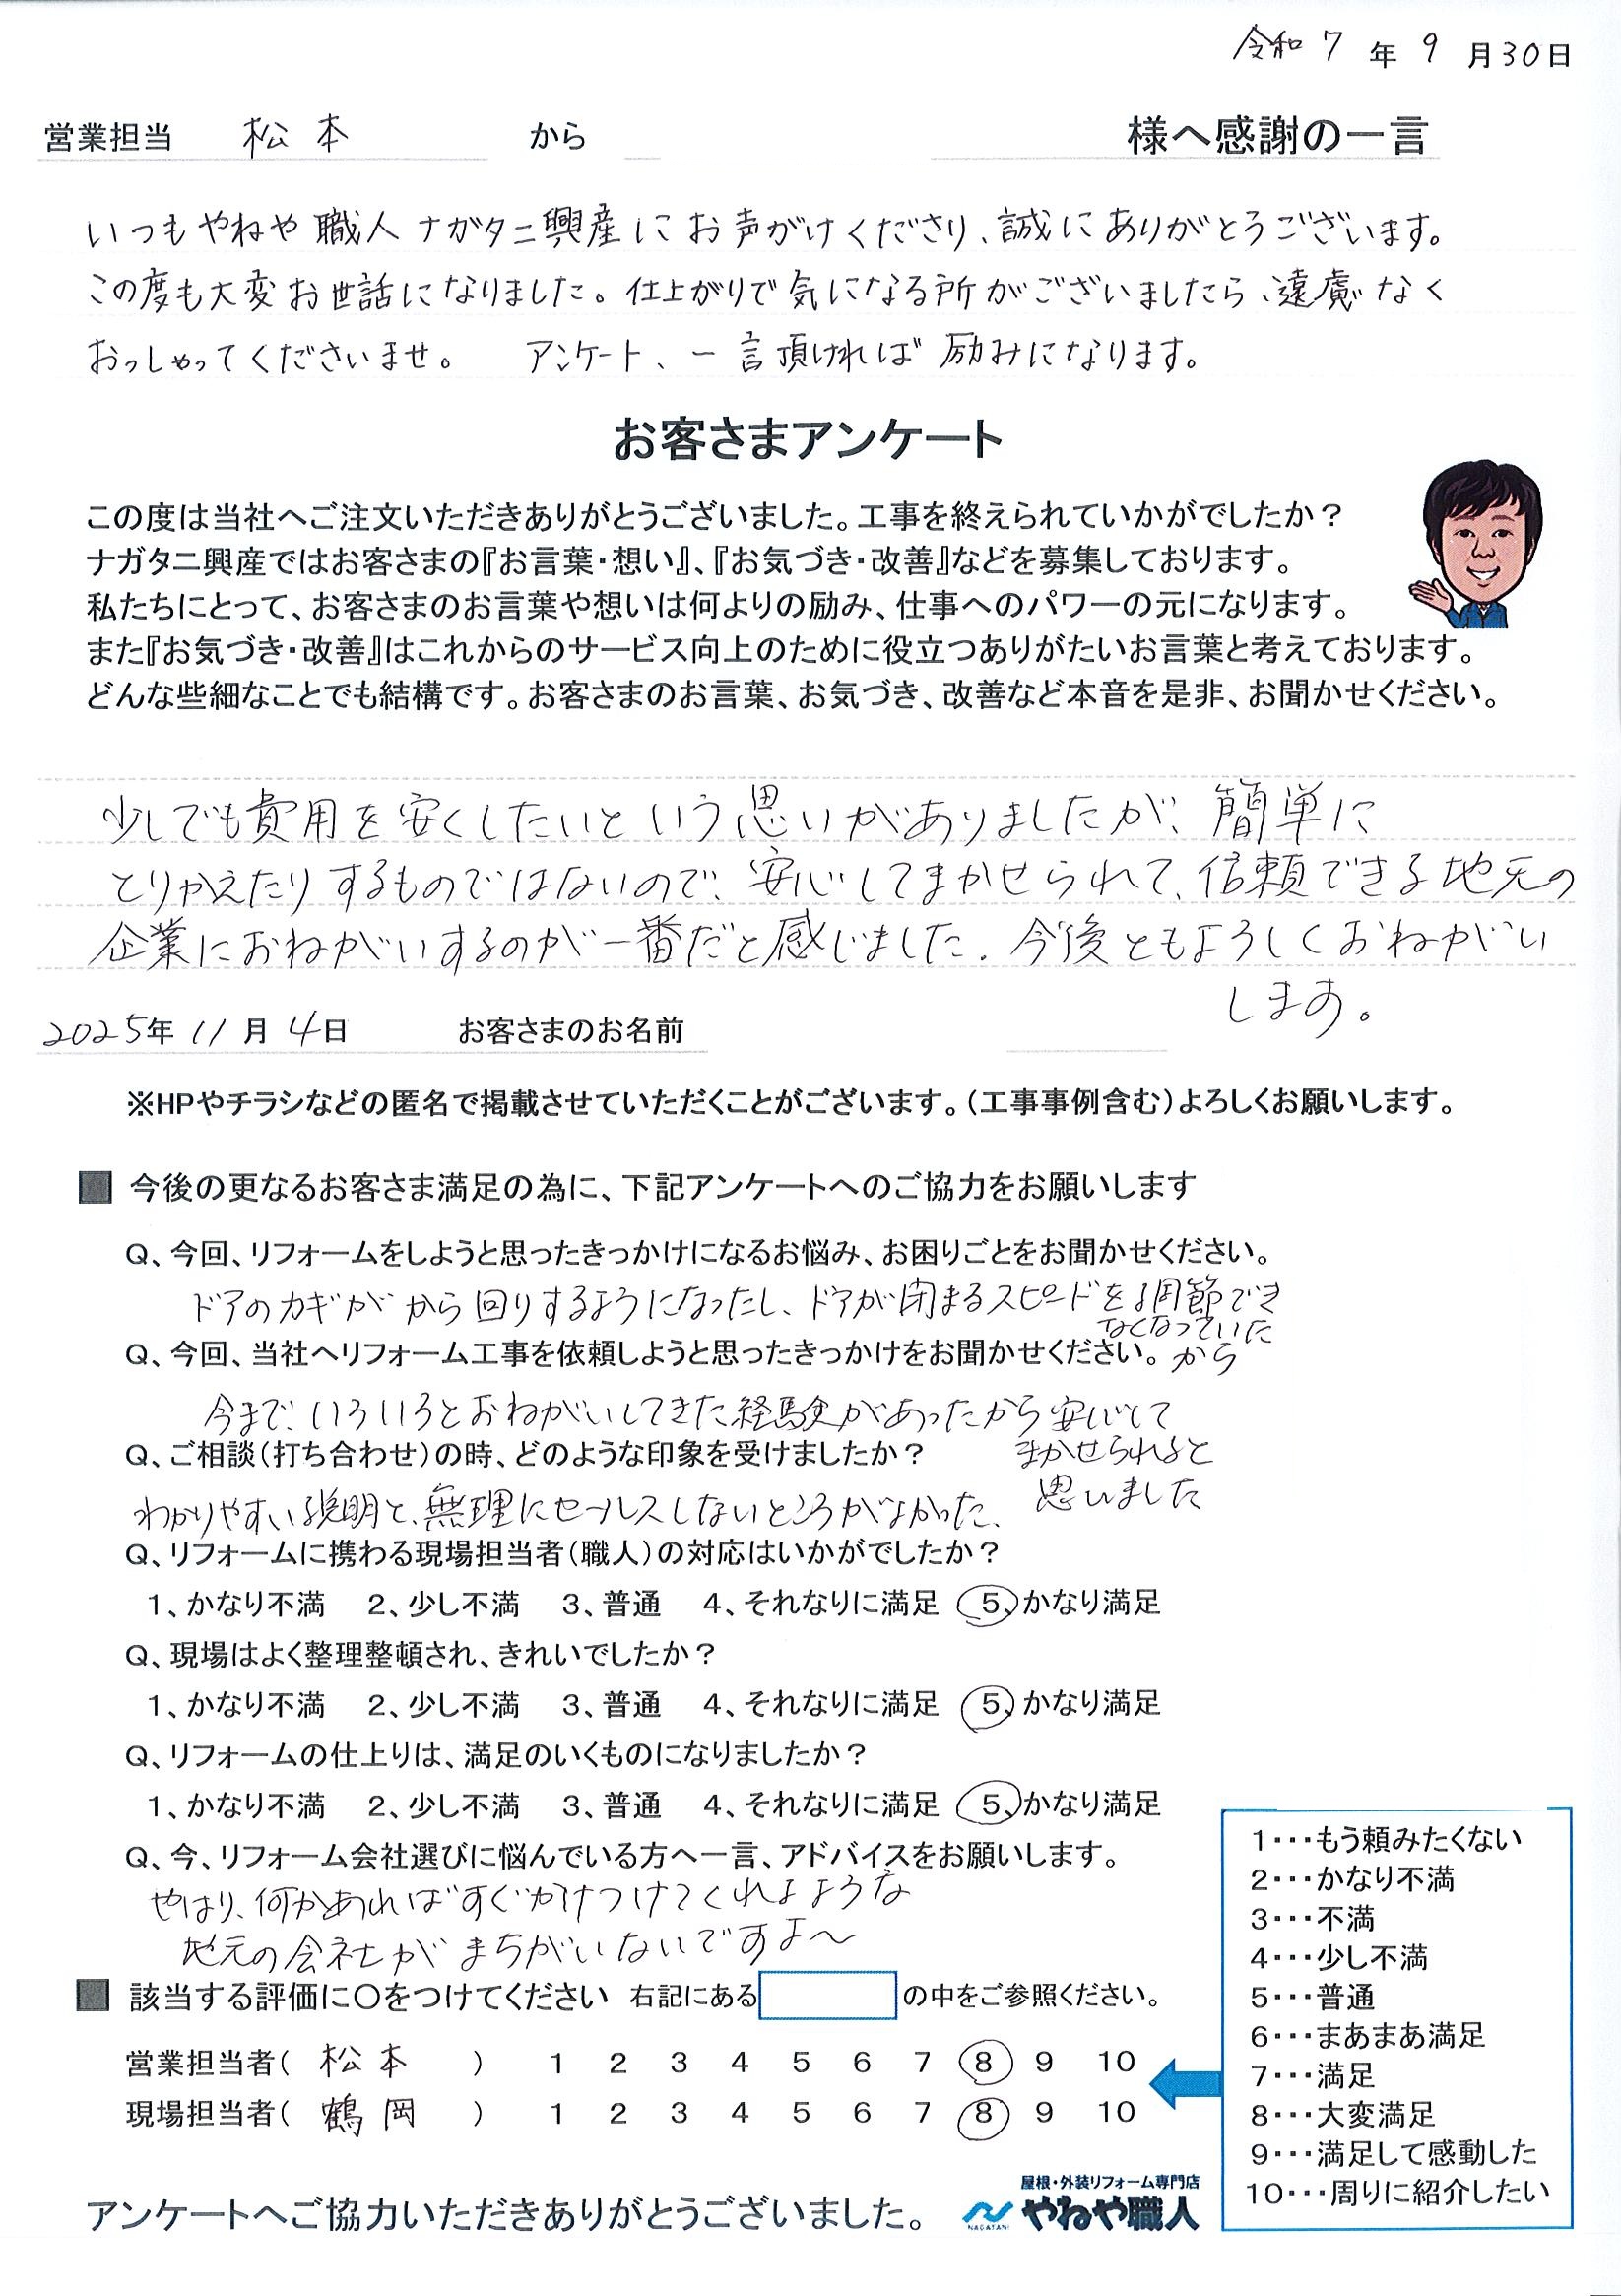 令和 7 年 9 月 30日
営業担当 松本 から 様へ感謝の一言
いつもやねや職人ナガタニ興産にお声がけくださり、誠にありがとうございます。
この度も大変お世話になりました。仕上がりで気になる所がございましたら、遠慮なく
おっしゃってくださいませ。 アンケート、一言頂ければ励みになります。
お客さまアンケート
この度は当社へご注文いただきありがとうございました。工事を終えられていかがでしたか？
ナガタニ興産ではお客さまの『お言葉・想い』、『お気づき・改善』などを募集しております。
私たちにとって、お客さまのお言葉や想いは何よりの励み、仕事へのパワーの元になります。
また『お気づき・改善』はこれからのサービス向上のために役立つありがたいお言葉と考えております。
どんな些細なことでも結構です。お客さまのお言葉、お気づき、改善など本音を是非、お聞かせください。
少しでも費用を安くしたいという思いがありましたが、簡単に
とりかえたりするものではないので、安心してまかせられて、信頼できる地元の
企業におねがいするのが一番だと感じました。今後ともよろしくおねがい
します。
2025年 11月 4日 お客さまのお名前
※HPやチラシなどの匿名で掲載させていただくことがございます。（工事事例含む）よろしくお願いします。
■ 今後の更なるお客さま満足の為に、下記アンケートへのご協力をお願いします
Q、今回、リフォームをしようと思ったきっかけになるお悩み、お困りごとをお聞かせください。
ドアのカギがから回りするようになったし、ドアが閉まるスピードを調節でき
なくなっていた
から
Q、今回、当社へリフォーム工事を依頼しようと思ったきっかけをお聞かせください。
今まで、いろいろとおねがいしてきた経験があったから安心して
まかせられると
思いました
Q、ご相談（打ち合わせ）の時、どのような印象を受けましたか？
わかりやすい説明と、無理にセールスしないところがよかった、
Q、リフォームに携わる現場担当者（職人）の対応はいかがでしたか？
1、かなり不満 2、少し不満 3、普通 4、それなりに満足 5、かなり満足
Q、現場はよく整理整頓され、きれいでしたか？
1、かなり不満 2、少し不満 3、普通 4、それなりに満足 5、かなり満足
Q、リフォームの仕上りは、満足のいくものになりましたか？
1、かなり不満 2、少し不満 3、普通 4、それなりに満足 5、かなり満足
Q、今、リフォーム会社選びに悩んでいる方へ一言、アドバイスをお願いします。
やはり、何かあればすぐかけつけてくれるような
地元の会社がまちがいないですよ〜
■ 該当する評価に〇をつけてください 右記にある の中をご参照ください。
営業担当者（ 松本 ） 1 2 3 4 5 6 7 8 9 10
現場担当者（ 鶴岡 ） 1 2 3 4 5 6 7 8 9 10
1・・・もう頼みたくない
2・・・かなり不満
3・・・不満
4・・・少し不満
5・・・普通
6・・・まあまあ満足
7・・・満足
8・・・大変満足
9・・・満足して感動した
10・・・周りに紹介したい
アンケートへご協力いただきありがとうございました。
屋根・外装リフォーム専門店
NAGATANI やねや職人